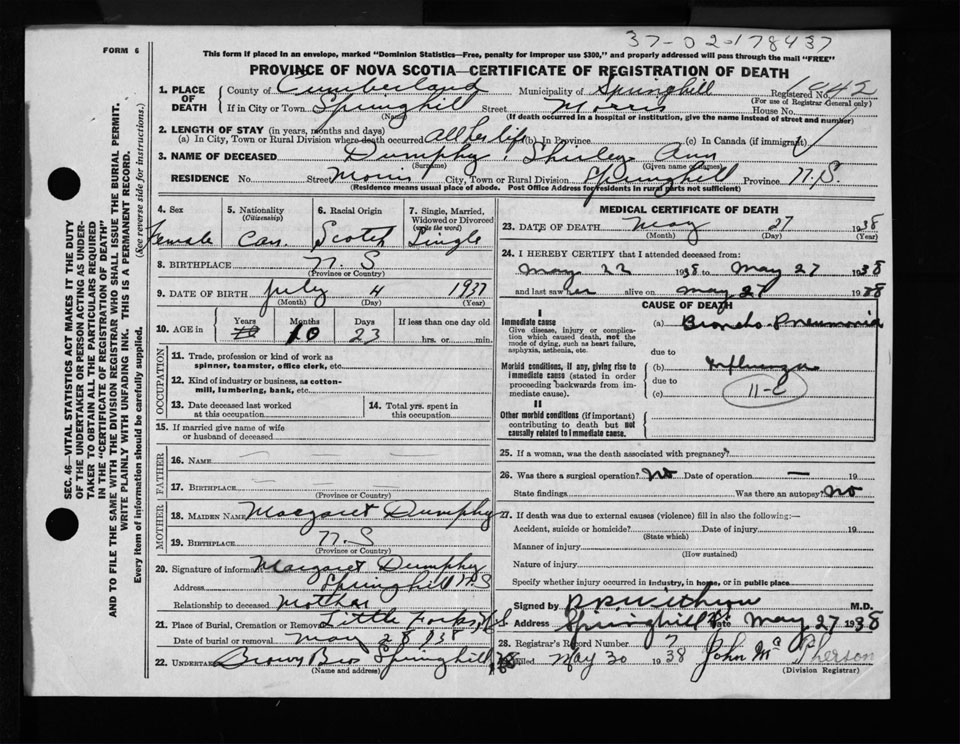 37-02-178437
FORM 6
This form if placed in an envelope, marked "Dominion Statistics—Free, penalty for improper use $300," and properly addressed will pass through the mail "FREE"
PROVINCE OF NOVA SCOTIA—CERTIFICATE OF REGISTRATION OF DEATH
SEC. 46—VITAL STATISTICS ACT MAKES IT THE DUTY
OF THE UNDERTAKER OR PERSON ACTING AS UNDER-
TAKER TO OBTAIN ALL THE PARTICULARS REQUIRED
IN THE "CERTIFICATE OF REGISTRATION OF DEATH"
AND TO FILE THE SAME WITH THE DIVISION REGISTRAR WHO SHALL ISSUE THE BURIAL PERMIT.
WRITE PLAINLY WITH UNFADING INK. THIS IS A PERMANENT RECORD.
Every item of information should be carefully supplied. (See reverse side for instructions.)
1. PLACE OF DEATH
County of Cumberland Municipality of Springhill Registered No. 842
(For use of Registrar General only)
If in City or Town Springhill Street Morris House No.
(Name) (If death occurred in a hospital or institution, give the name instead of street and number)
2. LENGTH OF STAY (in years, months and days)
(a) In City, Town or Rural Division where death occurred All her life (b) In Province (c) In Canada (if immigrant)
3. NAME OF DECEASED Dumphy, Shirley Ann
(Surname) (Given name or names)
RESIDENCE No. Street Morris City, Town or Rural Division Springhill Province N.S.
(Residence means usual place of abode. Post Office Address for residents in rural parts not sufficient)
4. Sex Female
5. Nationality (Citizenship) Can.
6. Racial Origin Scotch
7. Single, Married, Widowed or Divorced (write the word) Single
8. BIRTHPLACE N. S
(Province or Country)
9. DATE OF BIRTH July 4 1937
(Month) (Day) (Year)
10. AGE in Years Months 10 Days 23 If less than one day old hrs. or min.
OCCUPATION
11. Trade, profession or kind of work as spinner, teamster, office clerk, etc.
12. Kind of industry or business, as cotton-mill, lumbering, bank, etc.
13. Date deceased last worked at this occupation
14. Total yrs. spent in this occupation
15. If married give name of wife or husband of deceased
FATHER
16. NAME — — —
17. BIRTHPLACE — — —
(Province or Country)
MOTHER
18. MAIDEN NAME Margaret Dumphy
19. BIRTHPLACE N. S
(Province or Country)
20. Signature of informant Margaret Dumphy
Address Springhill N.S
Relationship to deceased Mother
21. Place of Burial, Cremation or Removal Little Forks, N.S
Date of burial or removal May 28 1938
22. UNDERTAKER Brown Bros Springhill
(Name and address)
MEDICAL CERTIFICATE OF DEATH
23. DATE OF DEATH May 27 1938
(Month) (Day) (Year)
24. I HEREBY CERTIFY that I attended deceased from:
May 22 1938 to May 27 1938
and last saw her alive on May 27 1938
CAUSE OF DEATH
I
Immediate cause (a) Broncho-Pneumonia
Give disease, injury or complication which caused death, not the mode of dying, such as heart failure, asphyxia, asthenia, etc.
due to
Morbid conditions, if any, giving rise to immediate cause (stated in order proceeding backwards from immediate cause). (b) Influenza
due to
(c) 11-C
II
Other morbid conditions (if important) contributing to death but not causally related to immediate cause.
25. If a woman, was the death associated with pregnancy?
26. Was there a surgical operation? No Date of operation — 19
State findings Was there an autopsy? No
27. If death was due to external causes (violence) fill in also the following:—
Accident, suicide or homicide? Date of injury 19
(State which)
Manner of injury
(How sustained)
Nature of injury
Specify whether injury occurred in industry, in home, or in public place
Signed by M.D.
Address Springhill Date May 27 1938
28. Registrar's Record Number 7
Filed May 30 1938 John McPherson
(Division Registrar)